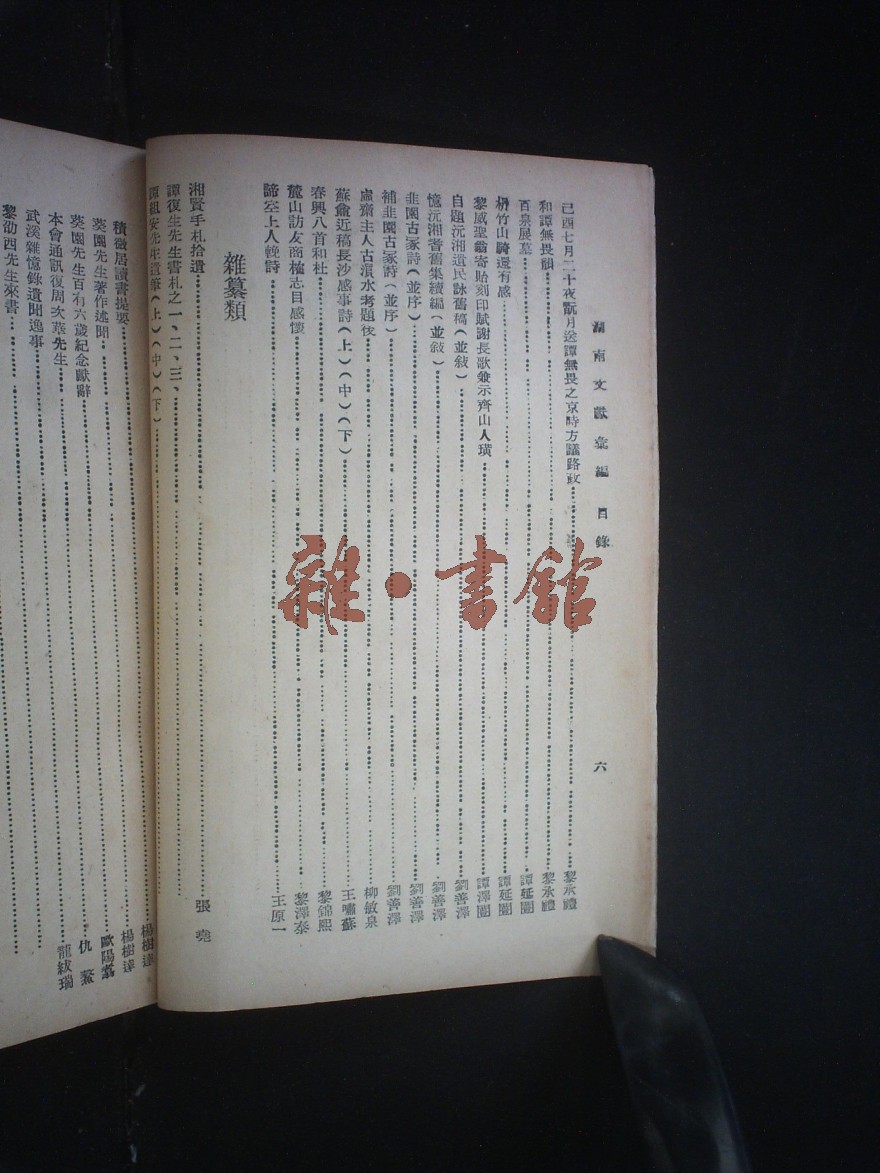 湖南文獻彙編 目錄
六
己酉七月二十夜翫月送譚無畏之京時方議路政 黎承禮
和譚無畏韻 黎承禮
百泉展墓 譚延闓
栟竹山騎還有感 譚延闓
黎威聖翁寄貽刻印賦謝長歌兼示齊山人璜 譚澤闓
自題沅湘遺民詠舊稿（並敍） 劉善澤
憶沅湘耆舊集續編（並敍） 劉善澤
韭園古冢詩（並序） 劉善澤
補韭園古冢詩（並序） 劉善澤
盧齋主人古潙水考題後 柳敏泉
蘇龕近稿長沙感事詩（上）（中）（下） 王嘯蘇
春興八首和杜 黎錦熙
麓山訪友商榷志目感懷 黎澤泰
諦空上人輓詩 王原一
雜纂類
湘賢手札拾遺 張堯
譚復生先生書札之一、二、三、
譚組安先生遺箑（上）（中）（下）
積微居讀書提要 楊樹達
葵園先生著作述聞 楊樹達
葵園先生百有六歲紀念獻辭 歐陽
本會通訊復周次葊先生 仇鰲
武溪雜憶錄遺聞逸事 龍紱瑞
黎劭西先生來書
雜·書館